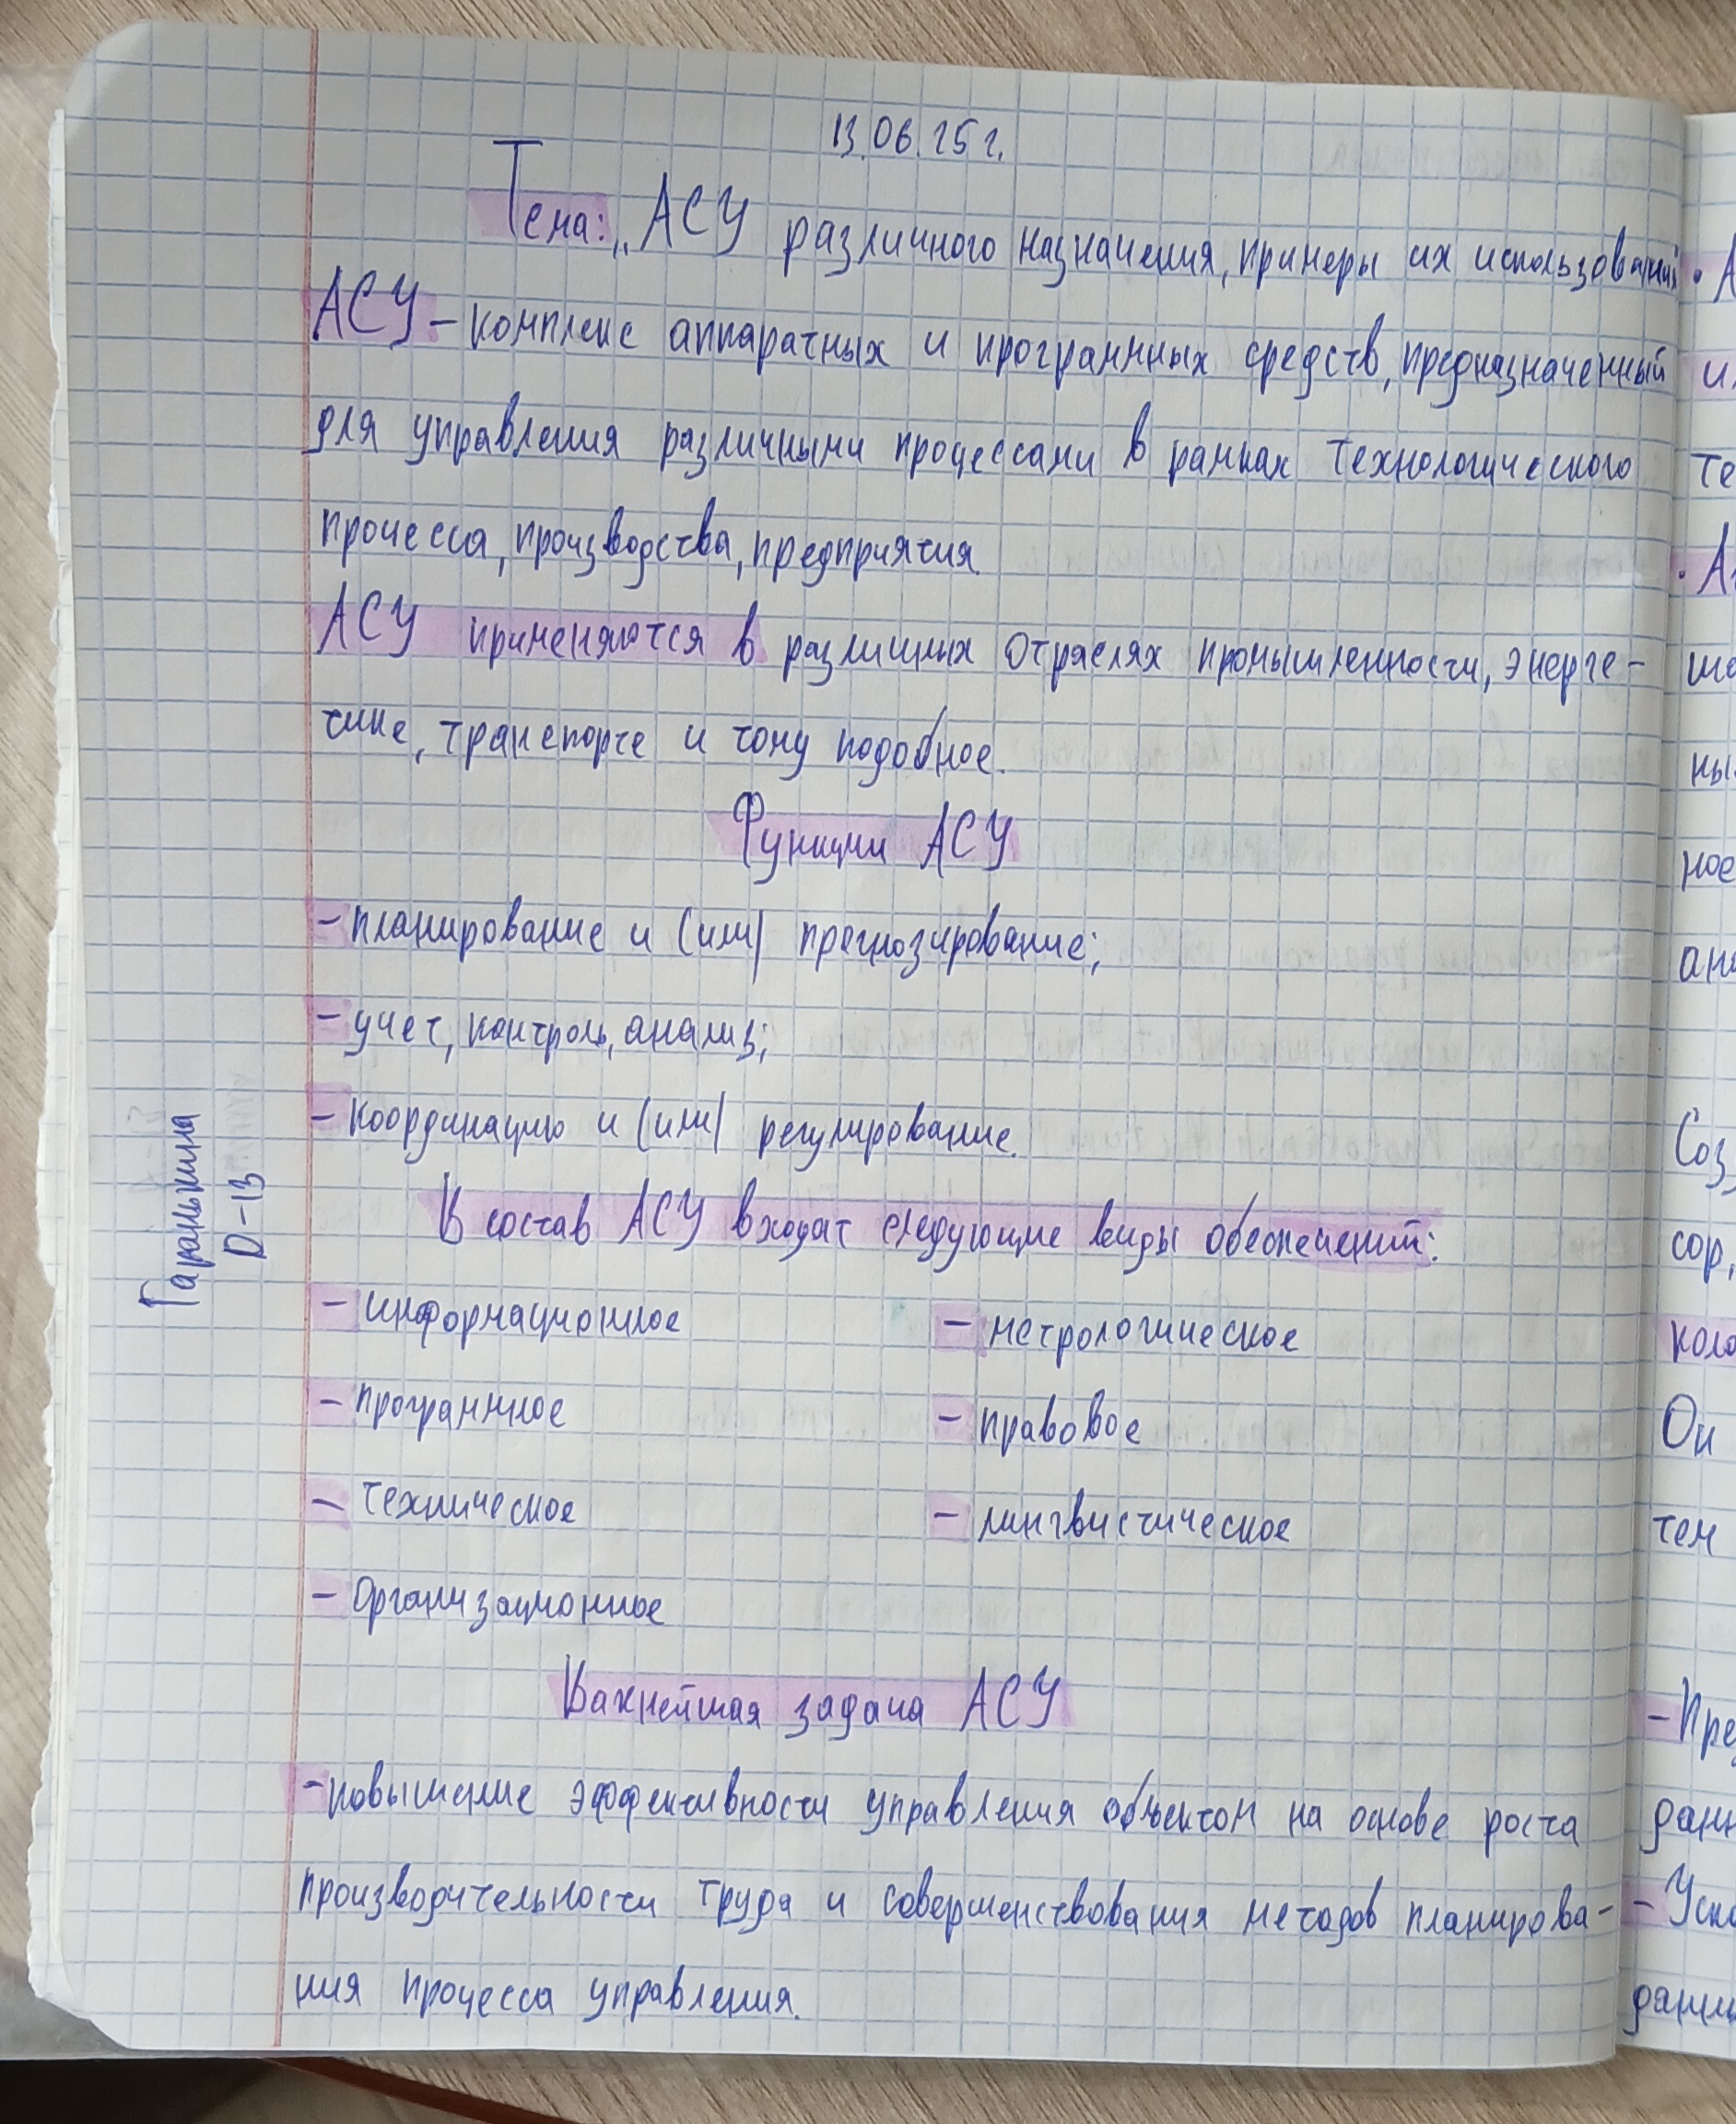 13.06.25 г.
Тема: „АСУ различного назначения, примеры их использований
АСУ – комплекс аппаратных и программных средств, предназначенный
для управления различными процессами в рамках технологического
процесса, производства, предприятия.
АСУ применяются в различных отраслях промышленности, энерге-
тике, транспорте и тому подобное.
Функции АСУ
– планирование и (или) прогнозирование;
– учет, контроль, анализ;
– координацию и (или) регулирование.
В состав АСУ входят следующие виды обеспечений:
– информационное
– метрологическое
– программное
– правовое
– техническое
– лингвистическое
– организационное
Важнейшая задача АСУ
– повышение эффективности управления объектом на основе роста
производительности труда и совершенствования методов планирова-
ния процесса управления.
Гаранькина
D-13
те
ное
Соз
сор,
Он
тем
– Пре
данн
– Уско